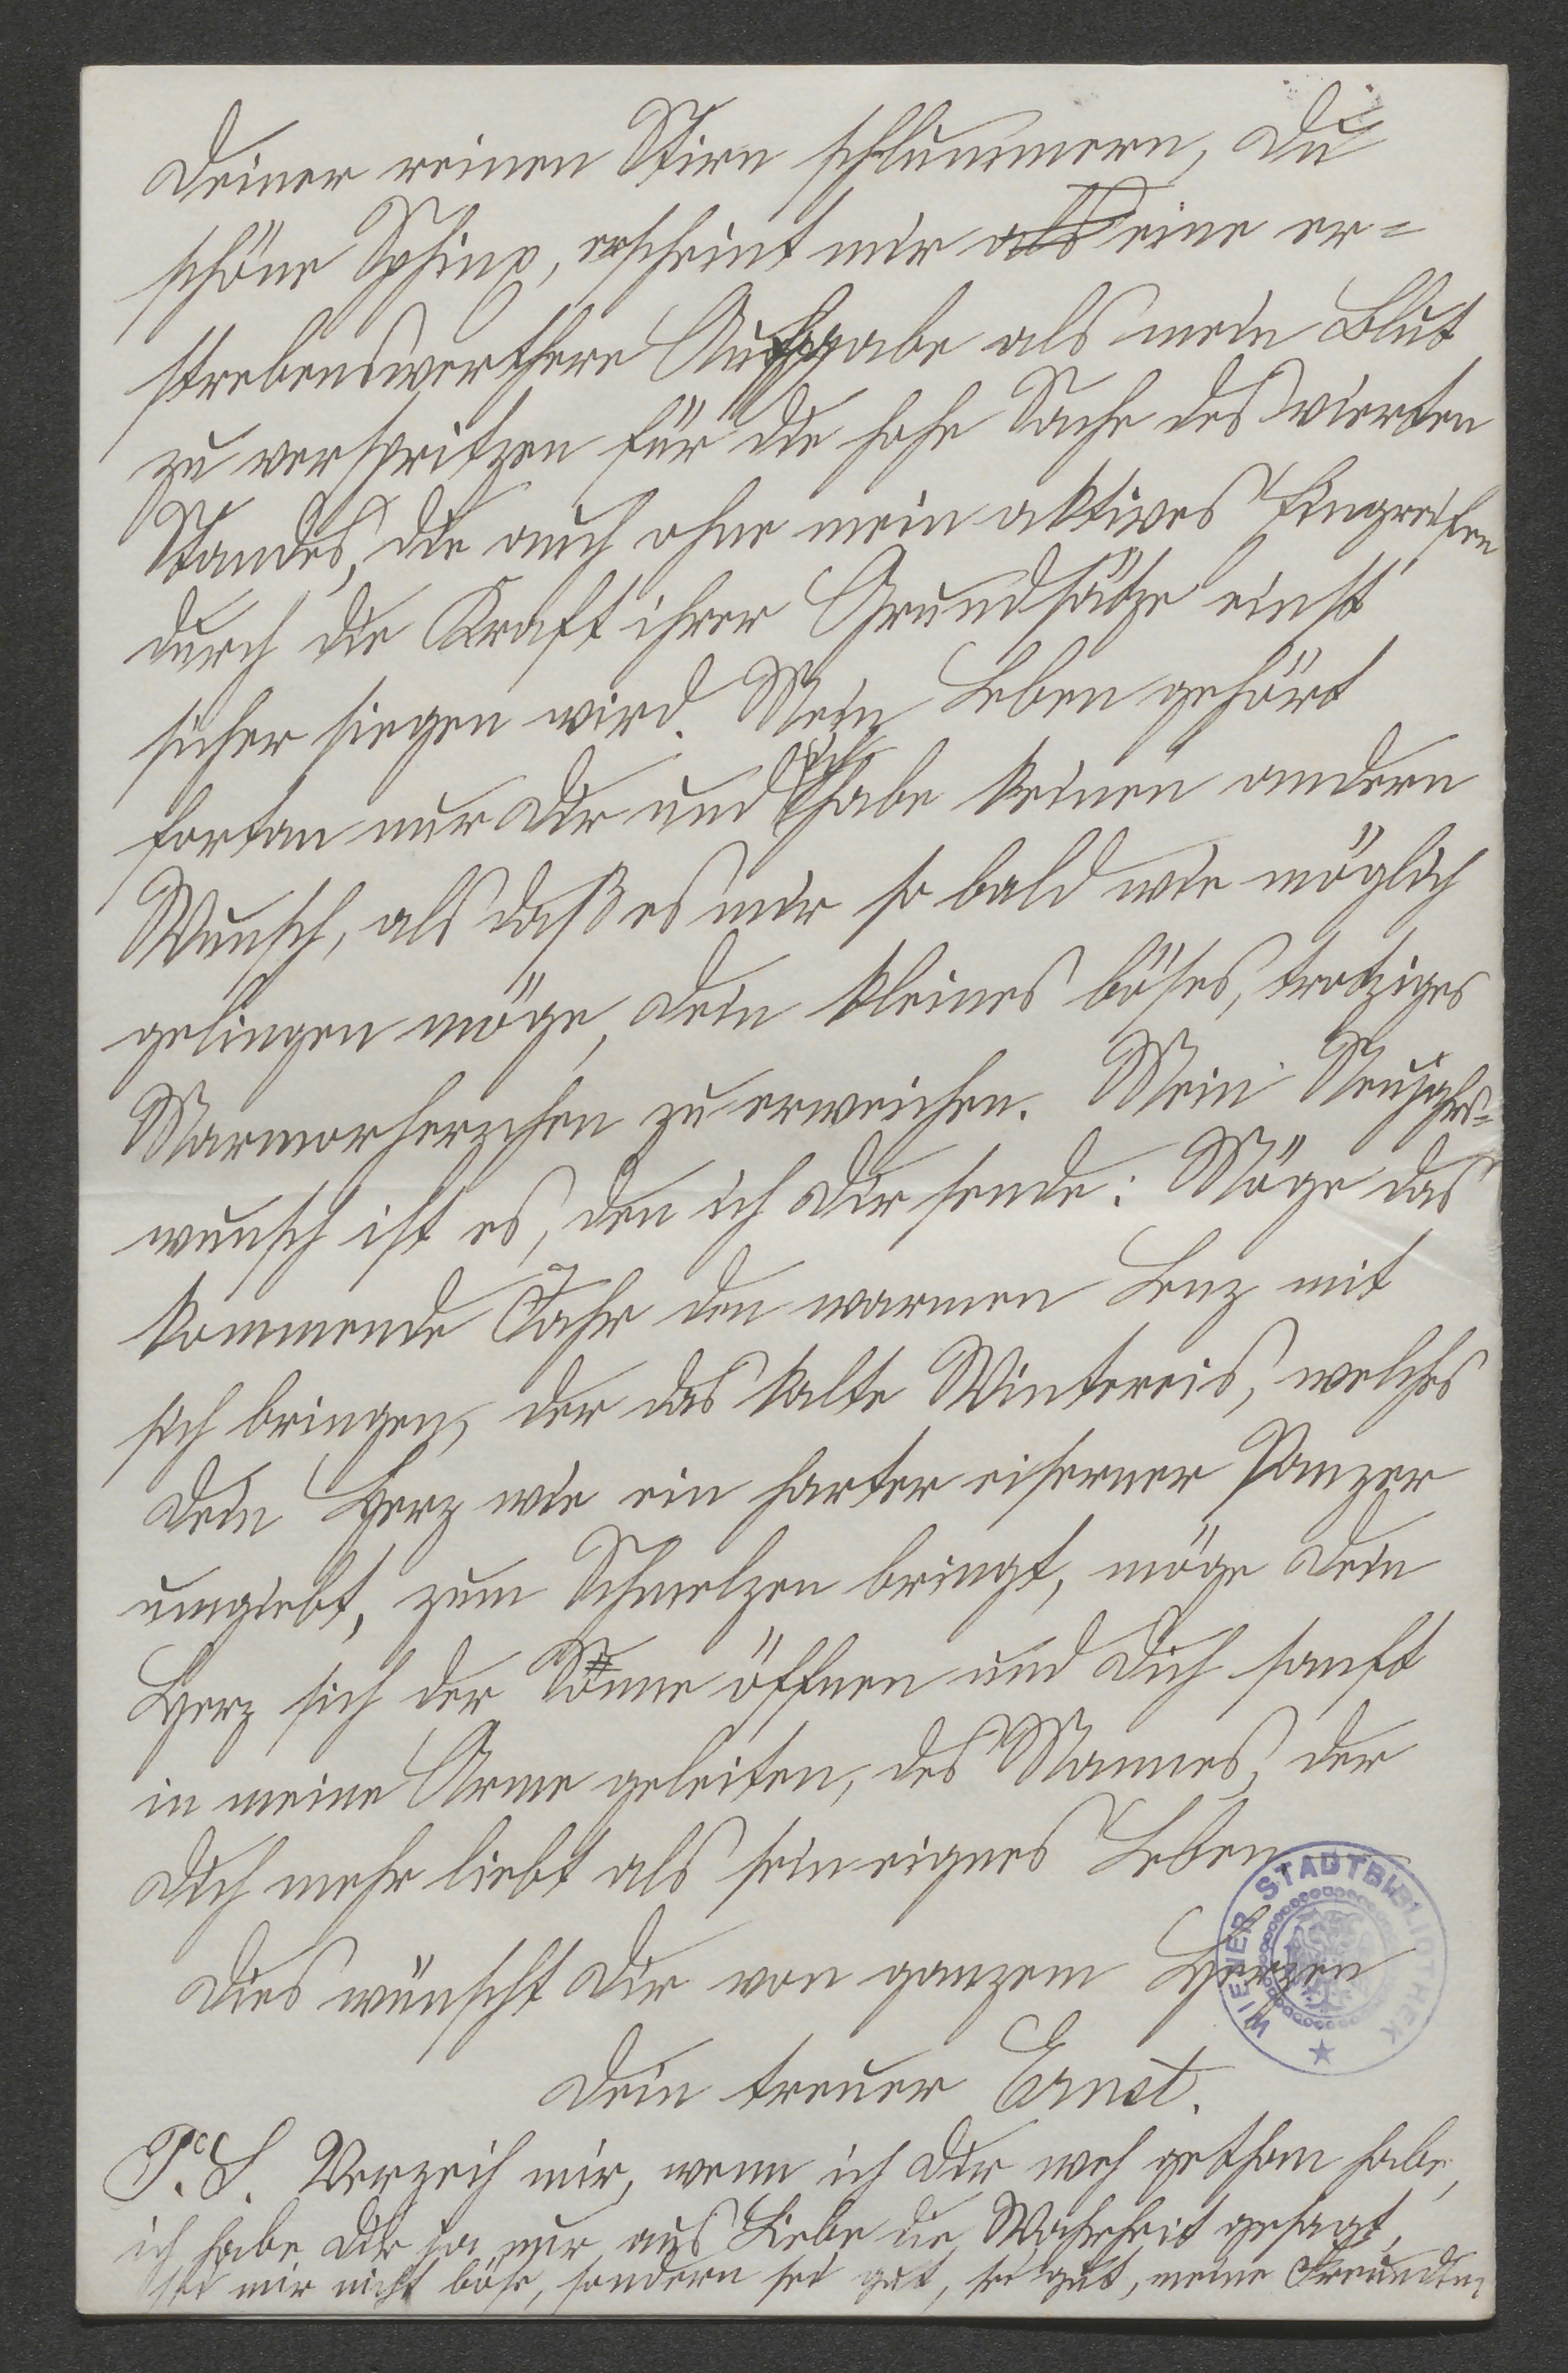 Deiner reinen Stirn schlummern, Du
schöne Sphinx, erscheint mir als eine er=
strebenswerthere Aufgabe als mein Blut
zu verspritzen für die hohe Sache des vierten
Standes, die auch ohne mein aktives Eingreifen
durch die Kraft ihrer Grundsätze einst
sicher siegen wird. Mein Leben gehört
fortan nur Dir und ich habe keinen andern
Wunsch, als daß es mir so bald wie möglich
gelingen möge, Dein kleines böses, trotziges
Marmorherzchen zu erweichen. Mein Neujahrs=
wunsch ist es, den ich Dir sende: Möge das
kommende Jahr den warmen Lenz mit
sich bringen, der das kalte Wintereis, welches
Dein Herz wie ein harter eiserner Panzer
umgiebt, zum Schmelzen bringt, möge Dein
Herz sich der Sonne öffnen und Dich sanft
in meine Arme geleiten, des Mannes, der
Dich mehr liebt als sein eignes Leben
Dies wünscht Dir von ganzem Herzen
Dein treuer Ernst.
P. S. Verzeih mir, wenn ich Dir weh gethan habe,
ich habe Dir ja nur aus Liebe die Wahrheit gesagt,
sei mir nicht böse, sondern sei gut, sei gut, meine Freundin
WIENER STADTBIBLIOTHEK